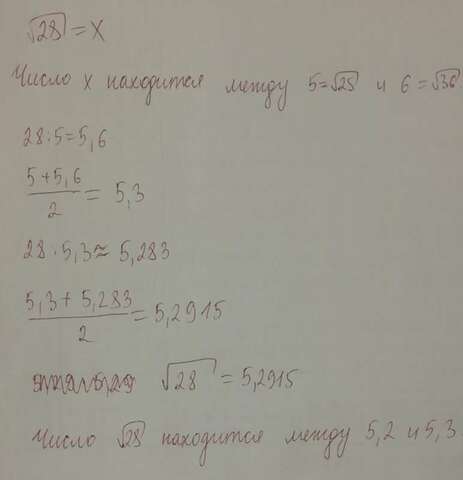 √28 = x
Число x находится между 5=√25 и 6=√36
28:5=5,6
(5+5,6)/2 = 5,3
28:5,3≈ 5,283
(5,3+5,283)/2 = 5,2915
√28 = 5,2915
Число √28 находится между 5,2 и 5,3